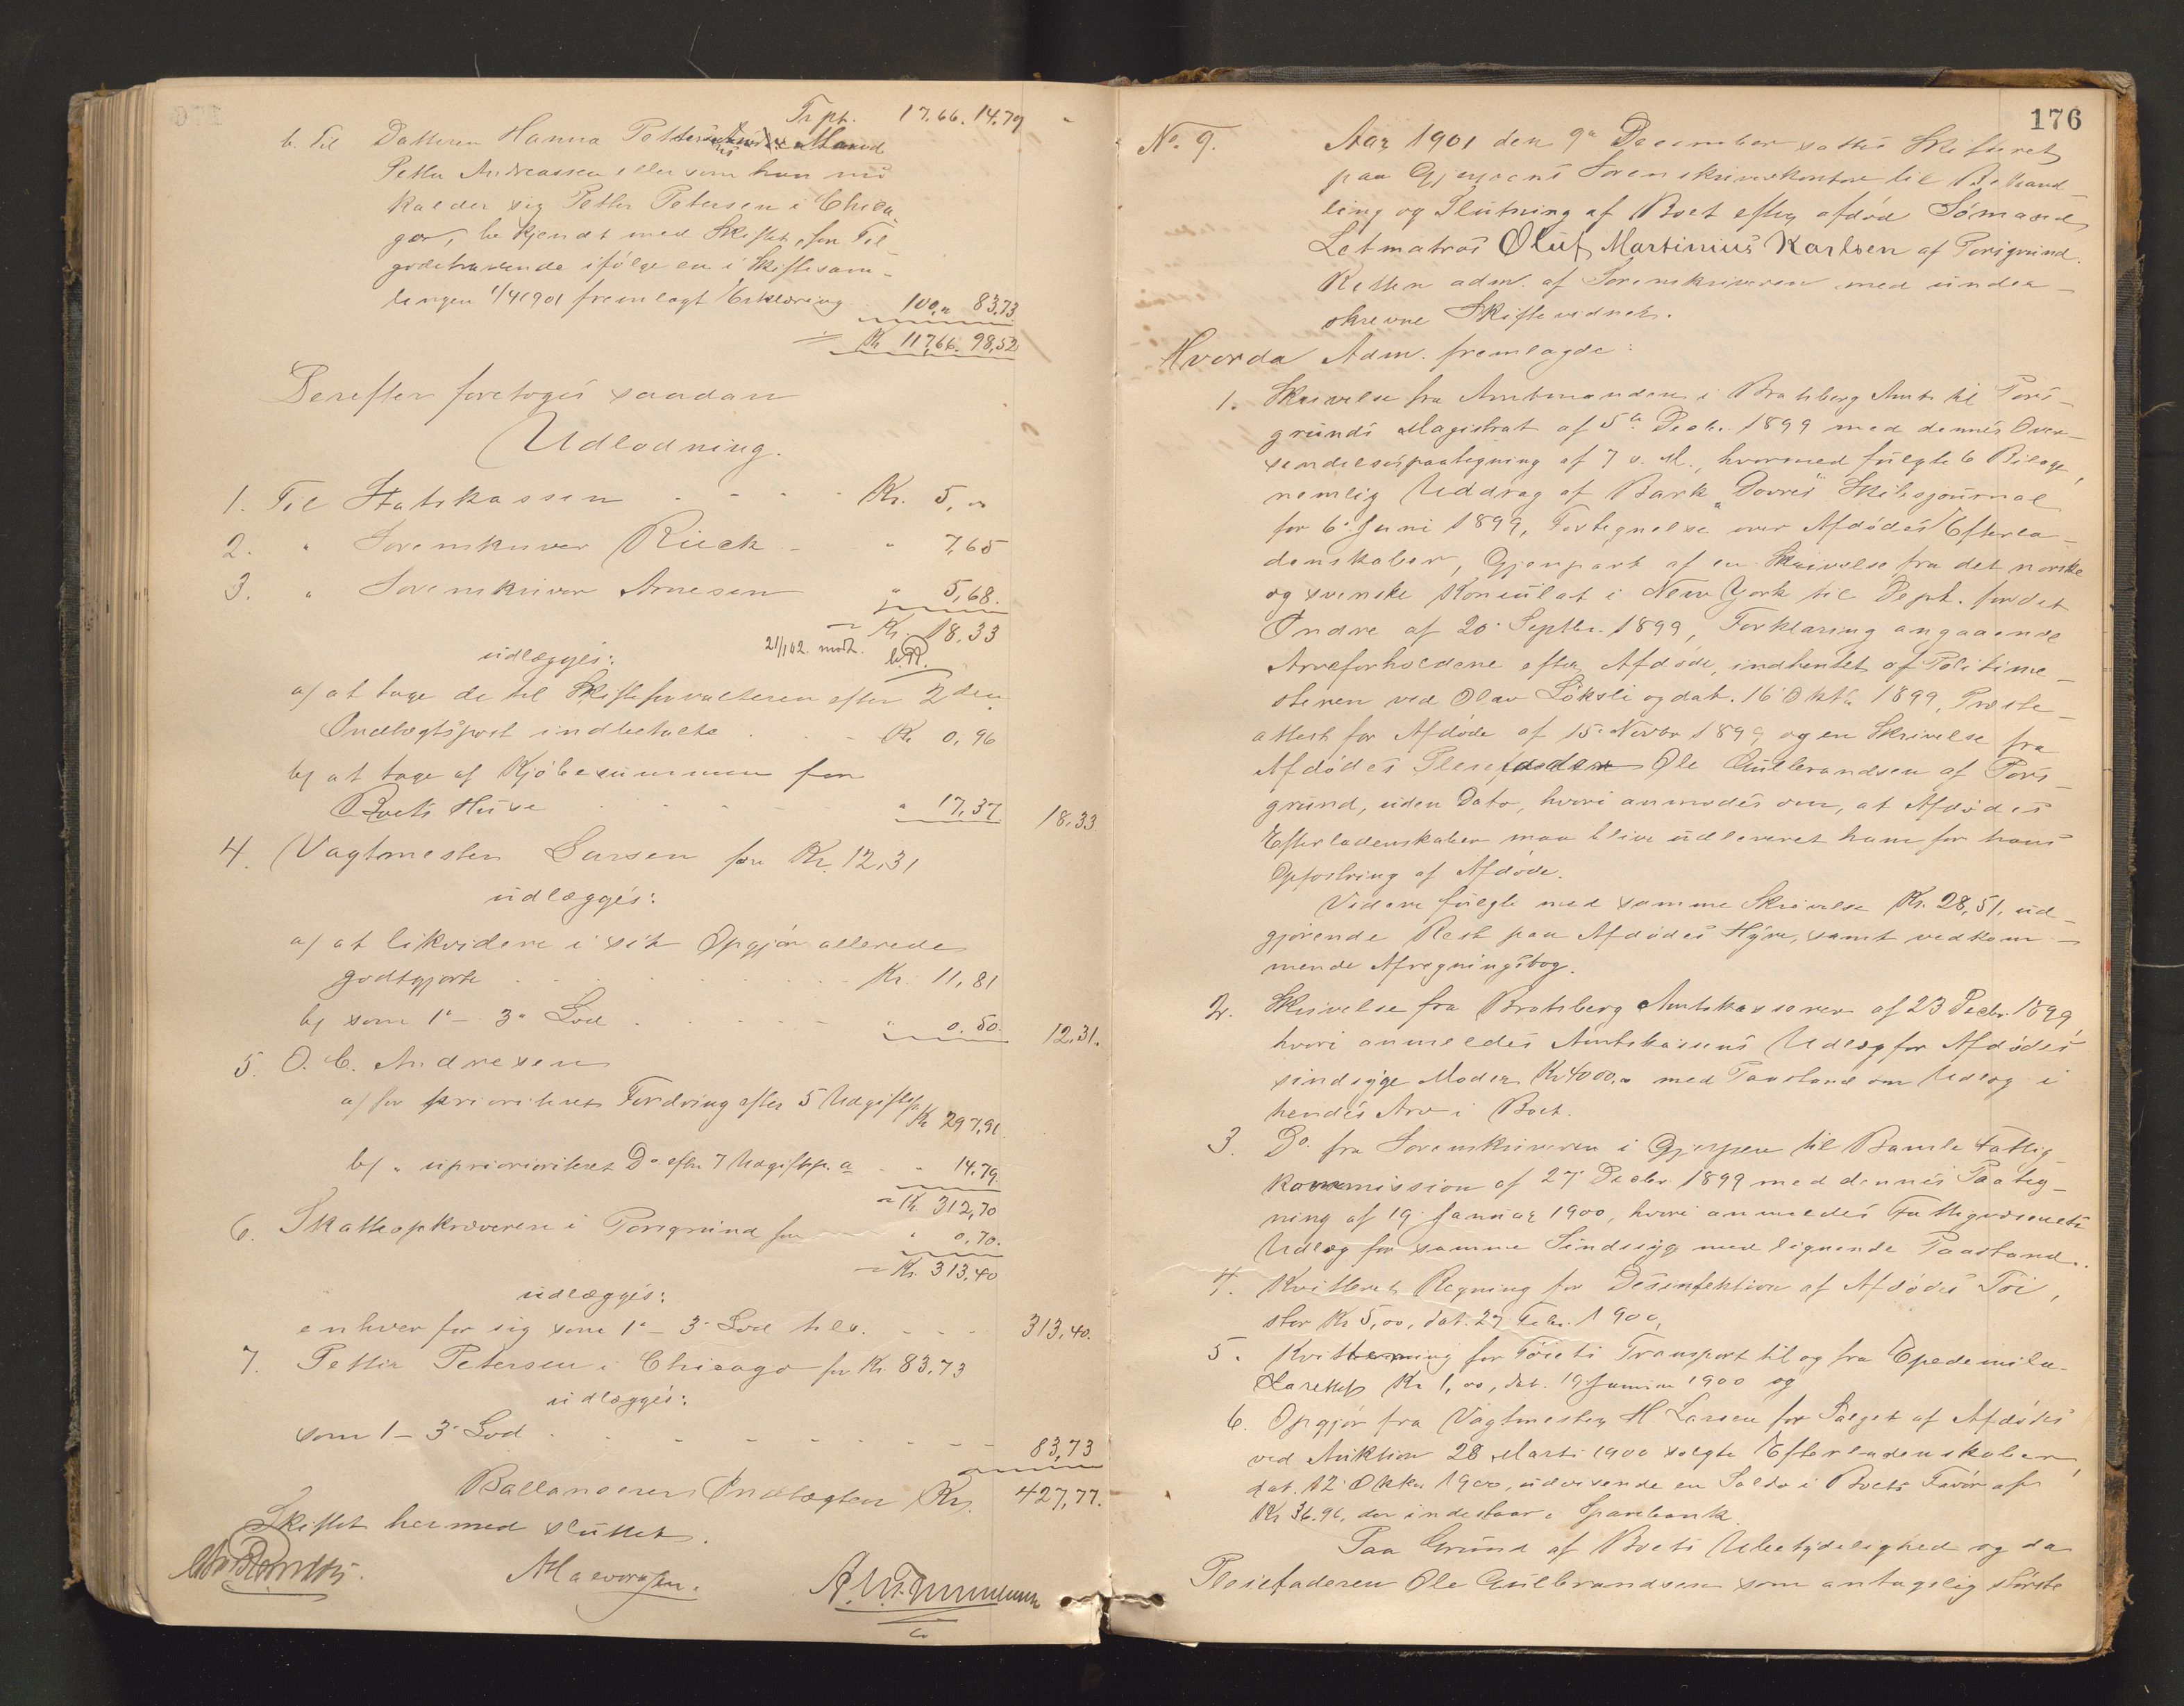 Trpt. 17.66. 14.79
6. Til Datteren Hanna Petters Mand
Petter Andreassen eller som han nu
kalder sig Petter Petersen i Chica-
go, be kjendt med Skiftet, for Til-
godehavende ifölge en i Skiftesam-
lingen 1/4 1901 fremlagt Erklæring 100,„ 83,73
Kr 117,66. 98,52
Derefter foretoges saadan
Udlodning.
1. Til Statskassen Kr. 5,„
2. " Sorenskriver Rieck " 7,65
3. " Sorenskriver Arnesen " 5,68.
Kr. 18.33
udlægges:
a/ at tage de til Skifteforvalteren efter 2den
Indtægtspost indbetalte Kr 0,96
b/ at tage af Kjöbesummen for
Boets Huse " 17,37 18,33
4. Vagtmester Larsen for Kr. 12,31
udlægges:
a/ at likvidere i sit Opgjör allerede
godtgjorte Kr. 11,81
b/ som 1ª - 3ª Lod " 0.50. 12,31.
5. O. C. Andresen
a/ for prioriteret Fordring efter 5 Udgiftsp. Kr 297,91
b/ " uprioriteret Do. efter 7 Udgiftsp. a " 14.79
Kr. 312,70
6. Skatteopkræveren i Porsgrund for " 0,70.
Kr. 313,40
udlægges:
enhver for sig som 1ª - 3ª Lod tils. 313,40.
7. Petter Petersen i Chicago for Kr. 83,73
udlægges:
som 1 - 3ª Lod 83,73
Ballancerer Indtægten Kr. 427,77.
Skiftet hermed sluttet.
176
No. 9. Aar 1901 den 9ª December sattes Skifteret
paa Gjerpens Sorenskriverkontor til Behand-
ling og Slutning af Boet efter afdød Sömand
Letmatros Oluf Martinius Karlsen af Porsgrund.
Retten adm. af Sorenskriveren med under-
skrevne Skiftevidner.
Hvorda Adm. fremlagde:
1. Skrivelse fra Amtmanden i Bratsberg Amt til Pors-
grunds Magistrat af 5ª Decbr. 1899 med dennes Over-
sendelsespaategning af 7 s. M., hvormed fulgte 6 Bilage,
nemlig Uddrag af Bark "Dovres" Skibsjournal
for 6. Juni 1899, Fortegnelse over Afdödes Efterla-
denskaber, Gjenpart af en Skrivelse fra det norske
og svenske Konsulat i New York til Dept. for det
Indre af 20. Septbr. 1899, Forklaring angaaende
Arveforholdene efter Afdöde, indhentet af Politime-
steren ved Olav Löksli og dat. 16 Oktb. 1899, Præste-
attest for Afdöde af 15. Novbr 1899 og en Skrivelse fra
Afdödes Pleiefader Ole Gulbrandsen af Pors-
grund, uden Dato, hvori anmodes om, at Afdödes
Efterladenskaber maa blive udleveret ham for hans
Opfostring af Afdöde.
Videre fulgte med samme Skrivelse Kr. 28,51, ud-
gjörende Rest paa Afdödes Hyre, samt vedkom-
mende Afregningsbog.
2. Skrivelse fra Bratsberg Amtskasserer af 23 Decbr. 1899,
hvori anmeldes Amtskassens Udlæg for Afdödes
sindsyge Moder Kr 4000.„ med Paastand om Udlæg i
hendes Arv i Boet.
3. Do. fra Sorenskriveren i Gjerpen til Bamle Fattig-
kommission af 27. Decbr 1899 med dennes Paateg-
ning af 19. Januar 1900, hvori anmeldes Fattigvæsenets
Udlæg for samme Sindssyg med lignende Paastand.
4. Kvitteret Regning for Desinfektion af Afdödes Töi,
stor Kr 5,00, dat. 27 Febr. 1900,
5. Kvittering for Töiets Transport til og fra Epedemila-
zarettet Kr 1,00, dat. 19. Januar 1900 og
6. Opgjör fra Vagtmester H Larsen for Salget af Afdödes
ved Auktion 28 Marts 1900 solgte Efterladenskaber,
dat. 12. Oktbr 1900, udvisende en Saldo i Boets Favör af
Kr 36.96, der indestaar i Sparebank.
Paa Grund af Boets Ubetydelighed og da
Pleiefaderen Ole Gulbrandsen som antagelig störste